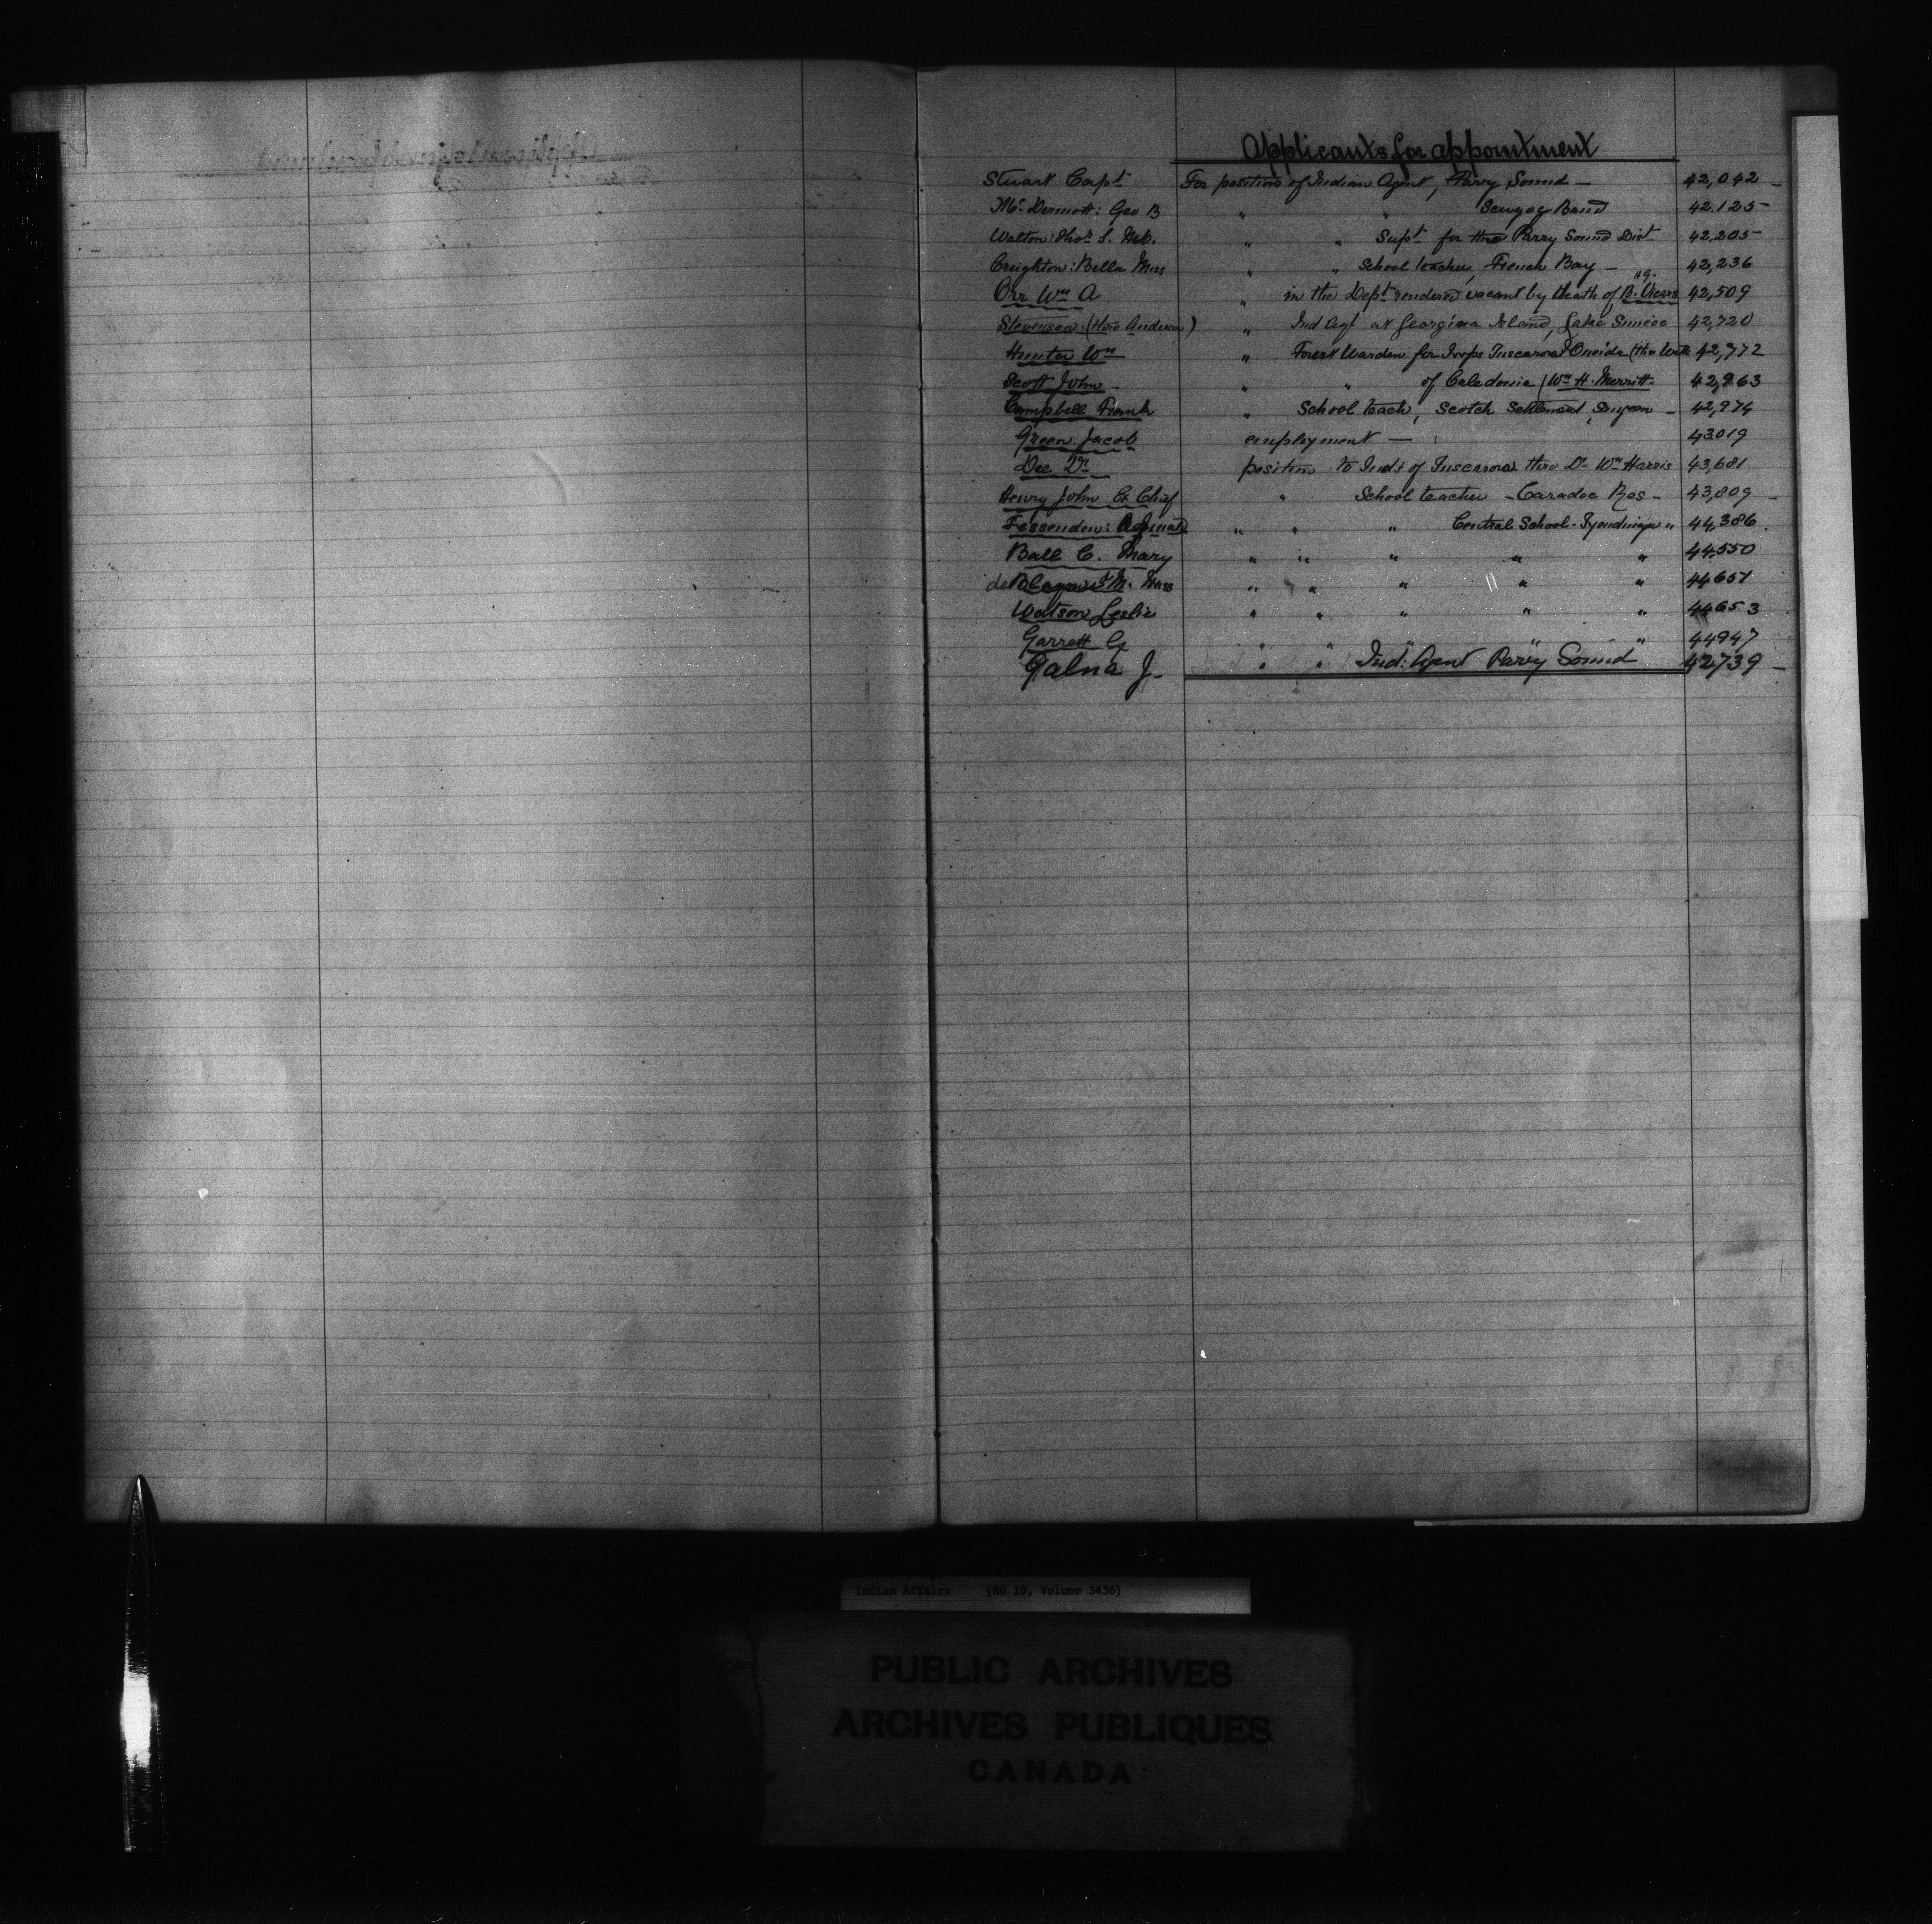 Applicants for appointment
Stuart Capt For position of Indian Agent, Parry Sound — 42,042
McDermott: Geo B " " Scugog Band 42.125
Walton: Thos S. Md. " " Supt for the Parry Sound Dist 42,205
Creighton: Bella Miss " " School teacher, French Bay — 42,236
Orr Wm A " in the Dept rendered vacant by death of B. 42,509
Stevenson: (Thro Anderson) " Ind Agt at Georgina Island, Lake Simcoe 42,720
Hunter Wm " Forest Warden for Twps Tuscarora & Oneida (thro 42,772
Scott John — " " of Caledonia (Wm H. Merritt 42,963
Campbell Frank " School teach, Scotch Settlement, Saugeen — 42,974
Green Jacob employment — 43019
Dee Dr position to Inds of Tuscarora thro Dr Wm Harris 43,681
Henry John Ex Chief " School teacher — Caradoc Res — 43,809
Fessenden: " " " Central School - Tyendinaga " 44,386
Ball C. Mary " " " " " 44550
de M. Miss " " " " " 44651
Watson Leslie " " " " " 44653
Garrett G " " " " " 44947
Galna J. " " Ind: Agent Parry Sound 42739
Indian Affairs (RG 10, Volume 3436)
PUBLIC ARCHIVES
ARCHIVES PUBLIQUES
CANADA